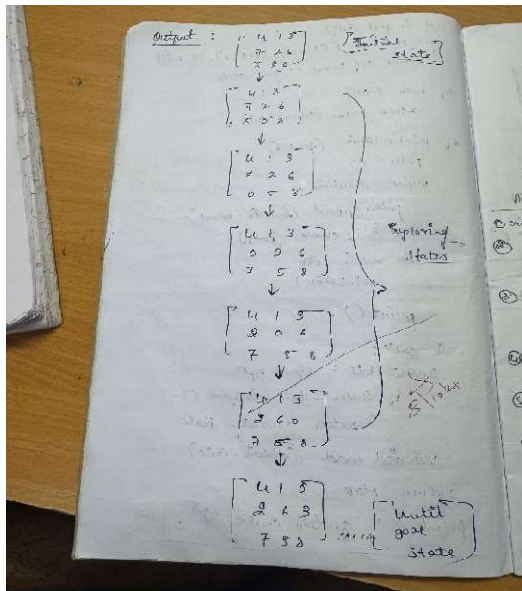 Output :
4 1 3
7 2 6
5 8 0
Initial
state
4 1 3
7 2 6
5 0 8
4 1 3
7 2 6
0 5 8
4 1 3
0 2 6
7 5 8
Exploring
states
4 1 3
2 0 6
7 5 8
4 1 3
2 6 0
7 5 8
4 1 3
2 6 3
7 5 8
Until
goal
state